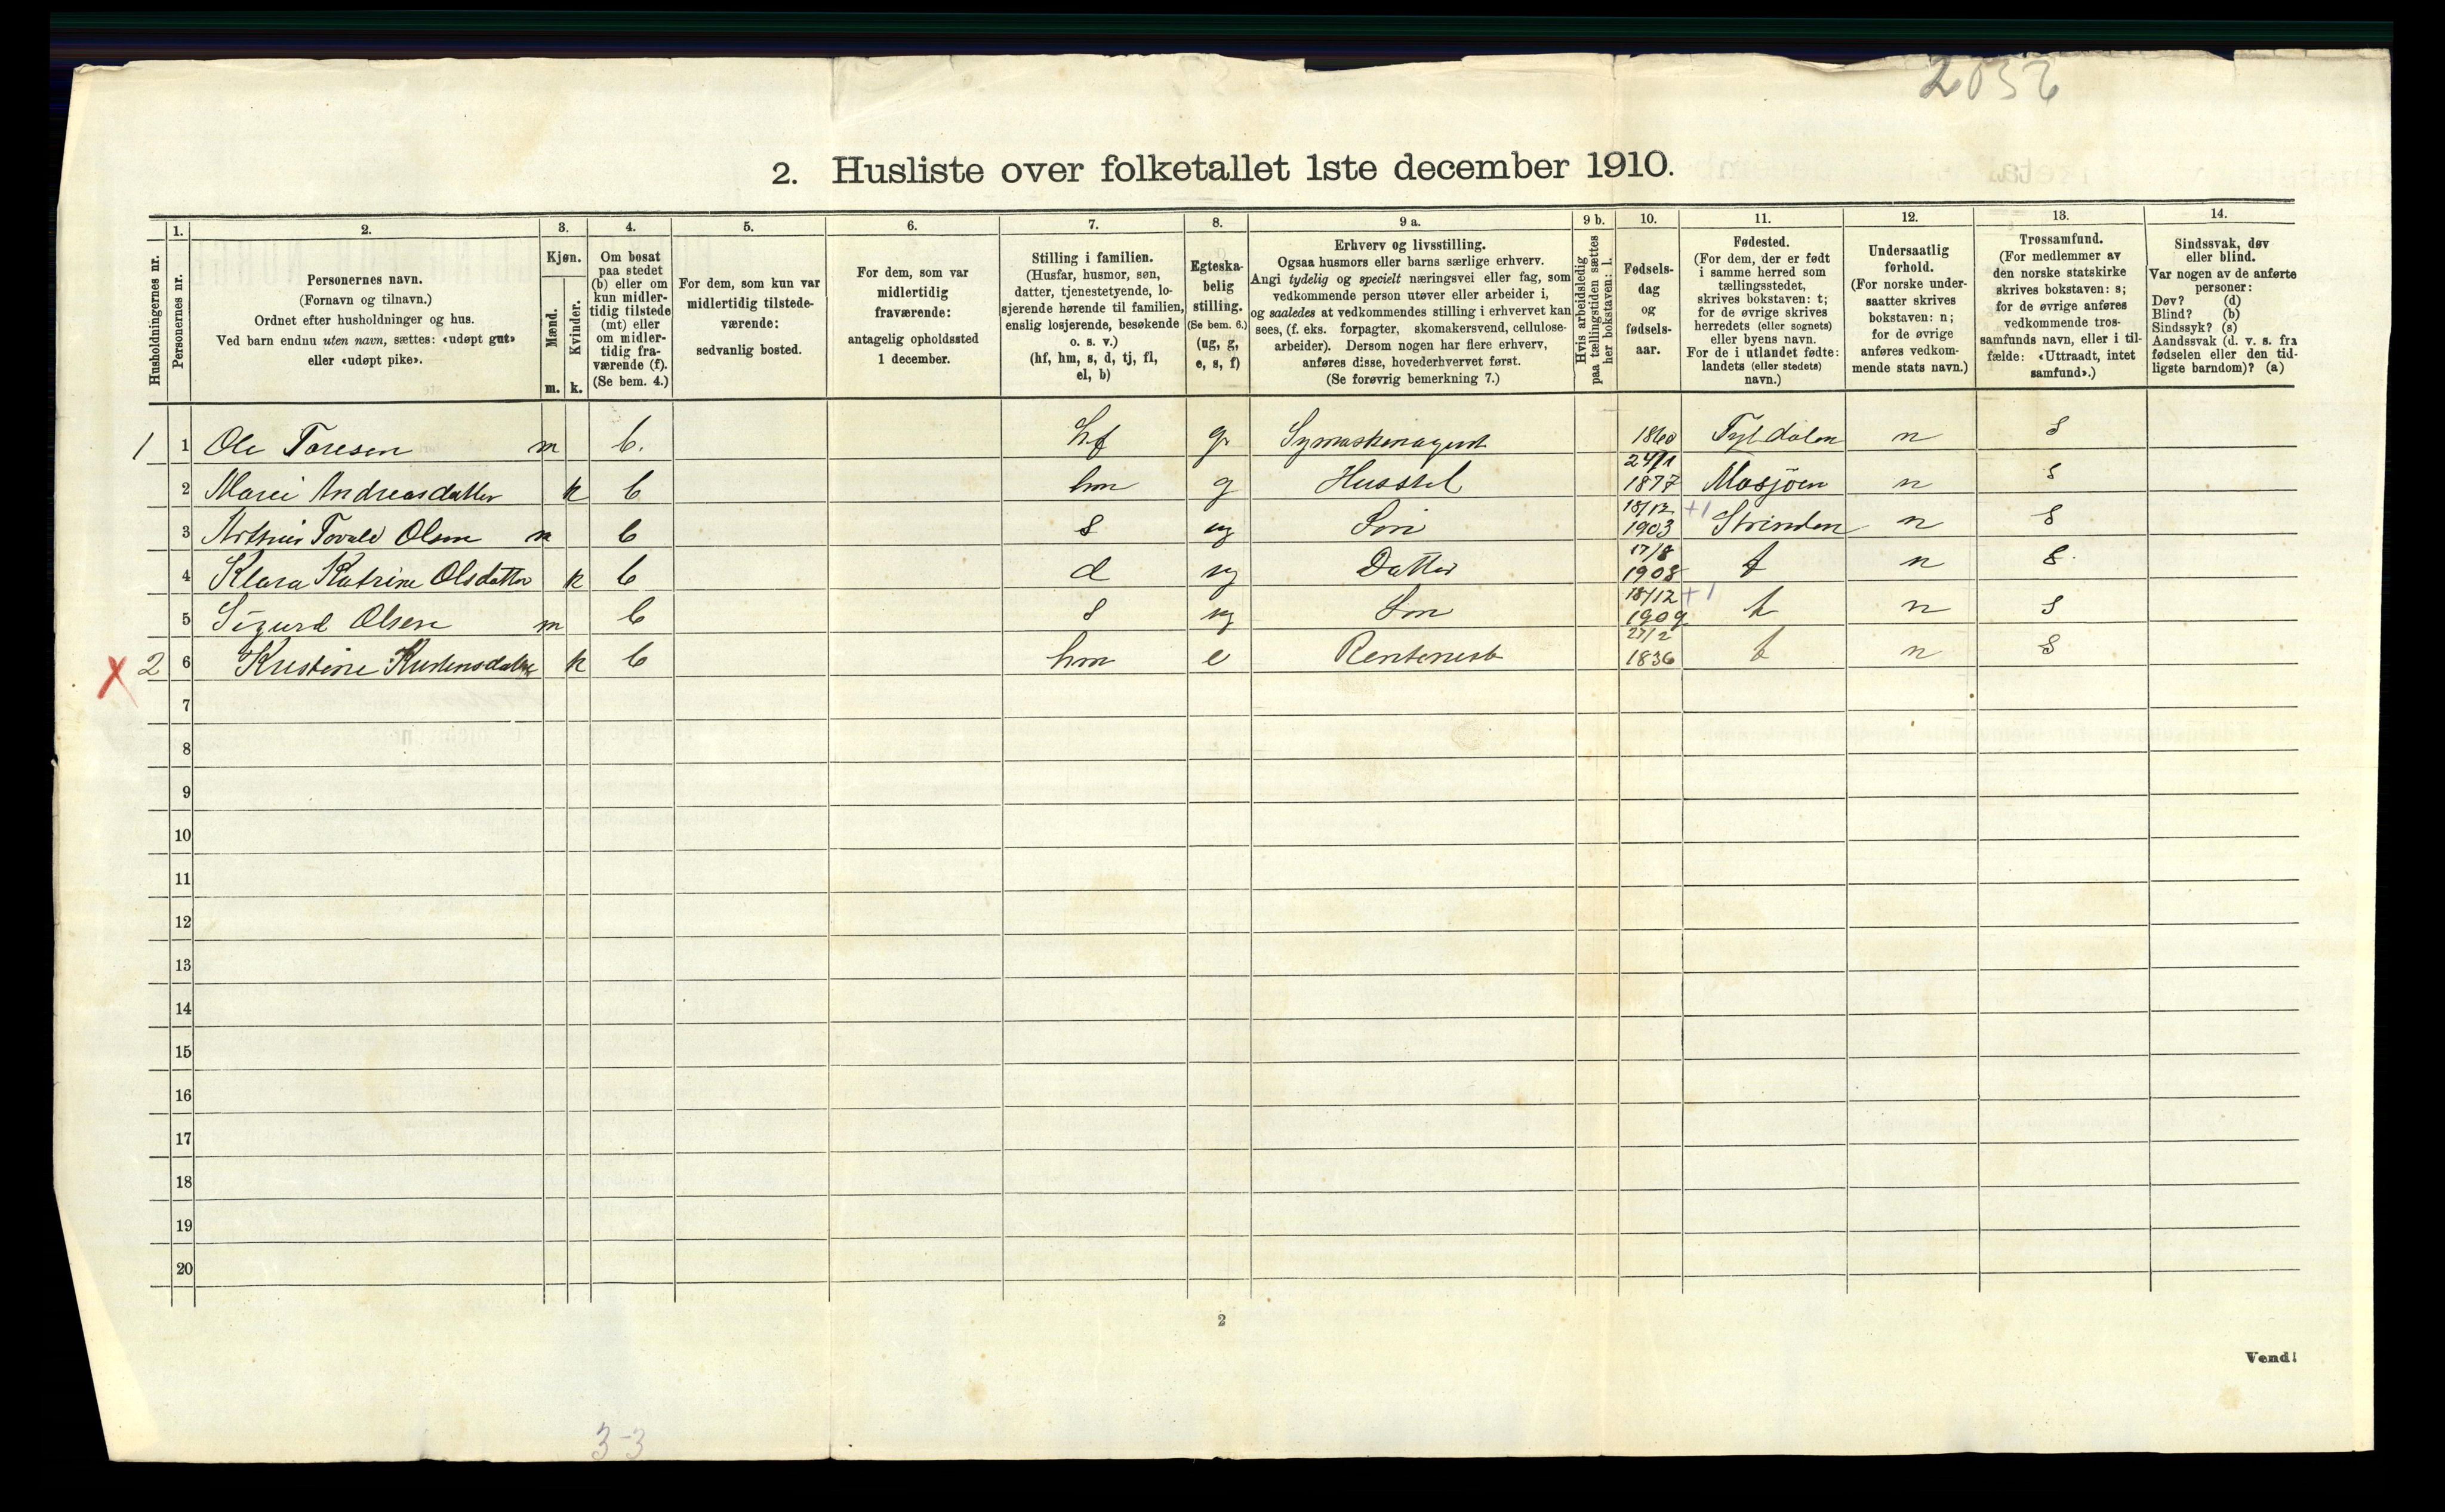 2036
2. Husliste over folketallet 1ste december 1910.
Husholdningernes nr.
1.
Personernes nr.
2.
Personernes navn.
(Fornavn og tilnavn.)
Ordnet efter husholdninger og hus.
Ved barn endnu uten navn, sættes: «udøpt gut»
eller «udøpt pike».
3.
Kjøn.
Mænd.
Kvinder.
m. k.
4.
Om bosat
paa stedet
(b) eller om
kun midler-
tidig tilstede
(mt) eller
om midler-
tidig fra-
værende (f).
(Se bem. 4.)
5.
For dem, som kun var
midlertidig tilstede-
værende:
sedvanlig bosted.
6.
For dem, som var
midlertidig
fraværende:
antagelig opholdssted
1 december.
7.
Stilling i familien.
(Husfar, husmor, søn,
datter, tjenestetyende, lo-
sjerende hørende til familien,
enslig losjerende, besøkende
o. s. v.)
(hf, hm, s, d, tj, fl,
el, b)
8.
Egteska-
belig
stilling.
(Se bem. 6.)
(ug, g,
e, s, f)
9 a.
Erhverv og livsstilling.
Ogsaa husmors eller barns særlige erhverv.
Angi tydelig og specielt næringsvei eller fag, som
vedkommende person utøver eller arbeider i,
og saaledes at vedkommendes stilling i erhvervet kan
sees, (f. eks. forpagter, skomakersvend, cellulose-
arbeider). Dersom nogen har flere erhverv,
anføres disse, hovederhvervet først.
(Se forøvrig bemerkning 7.)
9 b.
Hvis arbeidsledig
paa tællingstiden sættes
her bokstaven: l.
10.
Fødsels-
dag
og
fødsels-
aar.
11.
Fødested.
(For dem, der er født
i samme herred som
tællingsstedet,
skrives bokstaven: t;
for de øvrige skrives
herredets (eller sognets)
eller byens navn.
For de i utlandet fødte:
landets (eller stedets)
navn.)
12.
Undersaatlig
forhold.
(For norske under-
saatter skrives
bokstaven: n;
for de øvrige
anføres vedkom-
mende stats navn.)
13.
Trossamfund.
(For medlemmer av
den norske statskirke
skrives bokstaven: s;
for de øvrige anføres
vedkommende tros-
samfunds navn, eller i til-
fælde: «Uttraadt, intet
samfund».)
14.
Sindssvak, døv
eller blind.
Var nogen av de anførte
personer:
Døv? (d)
Blind? (b)
Sindssyk? (s)
Aandssvak (d. v. s. fra
fødselen eller den tid-
ligste barndom)? (a)
1 1 Ole Toresen m b. hf g Symaskinagent 1860 Tyldalen n s
2 Marei Andreasdatter k b hm g Husstel 24/1 1877 Mosjøen n s
3 Arthur Tovald Olsen m b s ug Søn 18/12 1903 +1 Strinden n s
4 Klara Katrine Olsdatter k b d ug Datter 17/8 1908 t n s
5 Sigurd Olsen m b s ug Søn 18/12 1909 +1 t n s
X 2 6 Kristine Kristensdatter k b hm e Rentenist 27/2 1836 t n s
7
8
9
10
11
12
13
14
15
16
17
18
19
20
2
Vend!
3-3